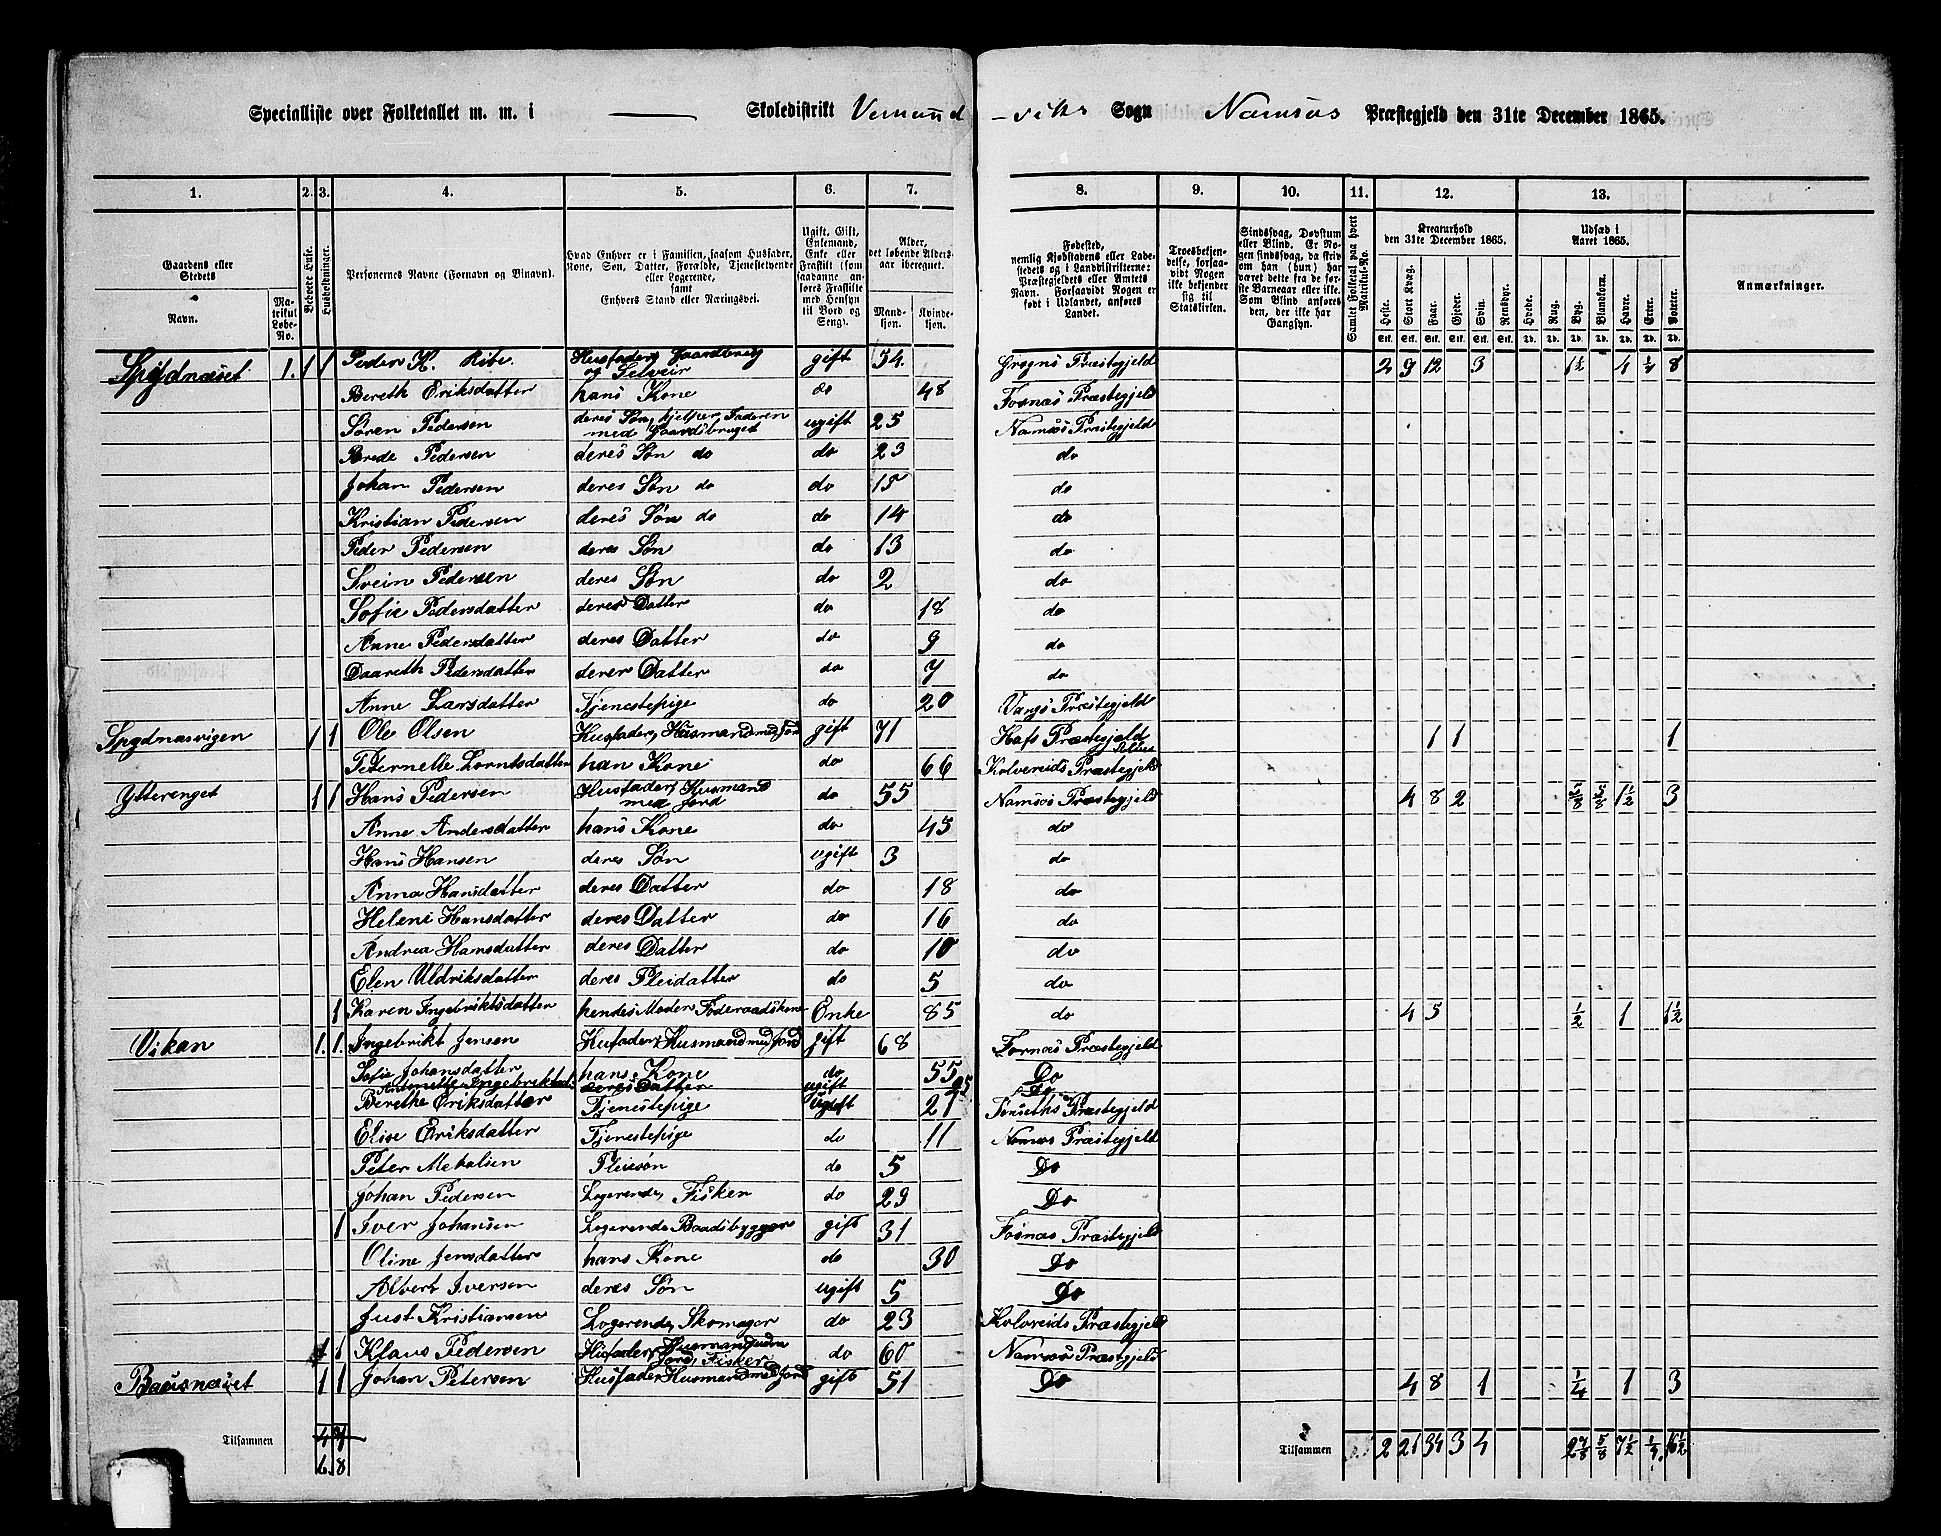 Specialliste over Folketallet m. m. i — Skoledistrikt Vemund-viks Sogn Namsos Præstegjeld den 31te December 1865.
1. 2. 3. 4. 5. 6. 7. 8. 9. 10. 11. 12. 13.
Gaardens eller Stedets Navn. Matrikul Løbe-No. Beboet Huse. Husholdninger.
Personernes Navne (Fornavn og Binavn).
Hvad Enhver er i Familien, saasom Husfader, Kone, Søn, Datter, Forældre, Tjenestetyende eller Logerende, samt Enhvers Stand eller Næringsvei.
Ugift, Gift, Enkemand, Enke eller Fraskilt (som saadanne anføres Fraskilte med Hensyn til Bord og Seng).
Alder, det løbende Aldersaar iberegnet. Mandkjøn. Kvindekjøn.
Fødested, nemlig Kjøbstadens eller Ladestedets og i Landdistrikterne: Præstegjeldets eller Amtets Navn. Forsaavidt Nogen er født i Udlandet, anføres Landet.
Troesbekjendelse, forsaavidt Nogen ikke bekjender sig til Statskirken.
Sindssvag, Døvstum eller Blind. Er Nogen sindssvag, da skrives om han (hun) har været dette fra de første Barneaar eller ikke. Som Blind anføres den, der ikke har Gangsyn.
Samlet Folketal paa hvert Matrikul-No.
Kreaturhold den 31te December 1865. Heste. Stort Kvæg. Faar. Gjeder. Svin. Rensdyr.
Udsæd i Aaret 1865. Hvede. Rug. Byg. Blandkorn. Havre. Erter. Poteter.
Anmærkninger.
Spydnæset 1. 1 1 Peder K. Husfader, Gaardbrug og Selveier gift 54. Præstegjeld 2 9 12 3 1½ 4 ¼ 8
Bereth Eriksdatter hans Kone do 48 Fosnæs Præstegjeld
Søren Pedersen deres Søn, hjelper Faderen med Gaardsbruget ugift 25 Namsos Præstegjeld
Brede Pedersen deres Søn do do 23 do
Johan Pedersen deres Søn do do 15 do
Kristian Pedersen deres Søn do do 14 do
Peder Pedersen deres Søn do 13 do
Svein Pedersen deres Søn do 2 do
Sofie Pedersdatter deres Datter do 18 do
Anne Pedersdatter deres Datter do 9 do
Daareth Pedersdatter deres Datter do 7 do
Anne Larsdatter Tjenestepige do 20 Præstegjeld
Spydnæsvigen 1 1 Ole Olsen Husfader, Husmand med Jord gift 71 Præstegjeld 1 1 1
Peternelle Lorntsdatter han Kone do 66 Kolvereids Præstegjeld
Ytterenget 1 1 Hans Pedersen Husfader, Husmand med Jord do 55 Namsos Præstegjeld 4 8 2 ⅝ ⅝ 1½ 3
Anne Andersdatter hans Kone do 45 do
Hans Hansen deres Søn ugift 3 do
Anna Hansdatter deres Datter do 18 do
Helene Hansdatter deres Datter do 16 do
Andrea Hansdatter deres Datter do 10 do
Elen Uldriksdatter deres Pleidatter do 5 do
1 Karen Ingebriktsdatter hendes Moder Føderaadskone Enke 85 do 4 5 ½ 1 1½
Vikan 1. 1. Ingebrikt Jensen Husfader, Husmand med Jord gift 68 Fosnæs Præstegjeld
Sofie Johansdatter hans Kone do 55 Do
deres Datter ugift 25 Do
Berethe Eriksdatter Tjenestepige ugift 21 Præstegjeld
Elise Eriksdatter Tjenestepige do 11 Namsos Præstegjeld
Peter Mekalsen Pleiesøn do 5 Do
Johan Pedersen Logerende, Fisker do 29 Do
1 Iver Johansen Logerende Baadsbygger gift 31 Fosnæs Præstegjeld
Oline Jensdatter hans Kone do 30 Do
Albert Iversen deres Søn ugift 5 Do
Just Kristiansen Logerende, Skomager do 23 Kolvereids Præstegjeld
1 1 Klaus Pedersen Husfader, Husmand uden Jord, Fisker do 60 Namsos Præstegjeld
Baasnæset 1 1 Johan Petersen Husfader Husmand med Jord gift 51 Do 4 8 1 ¼ 1 3
Tilsammen 4 7
6 8
Tilsammen 2 21 34 3 4 2⅞ ⅝ 7½ ¼ 16½